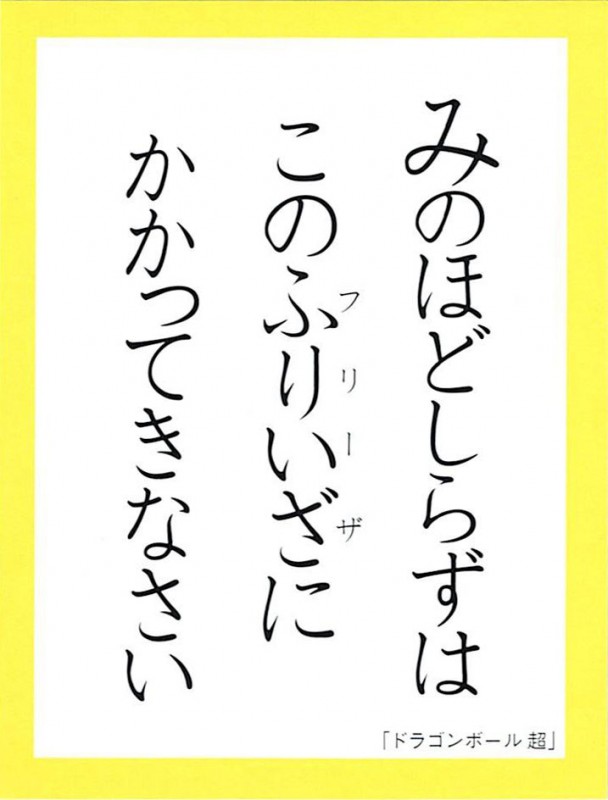 みのほどしらずは
このふりいざに
フリーザ
かかってきなさい
「ドラゴンボール 超」